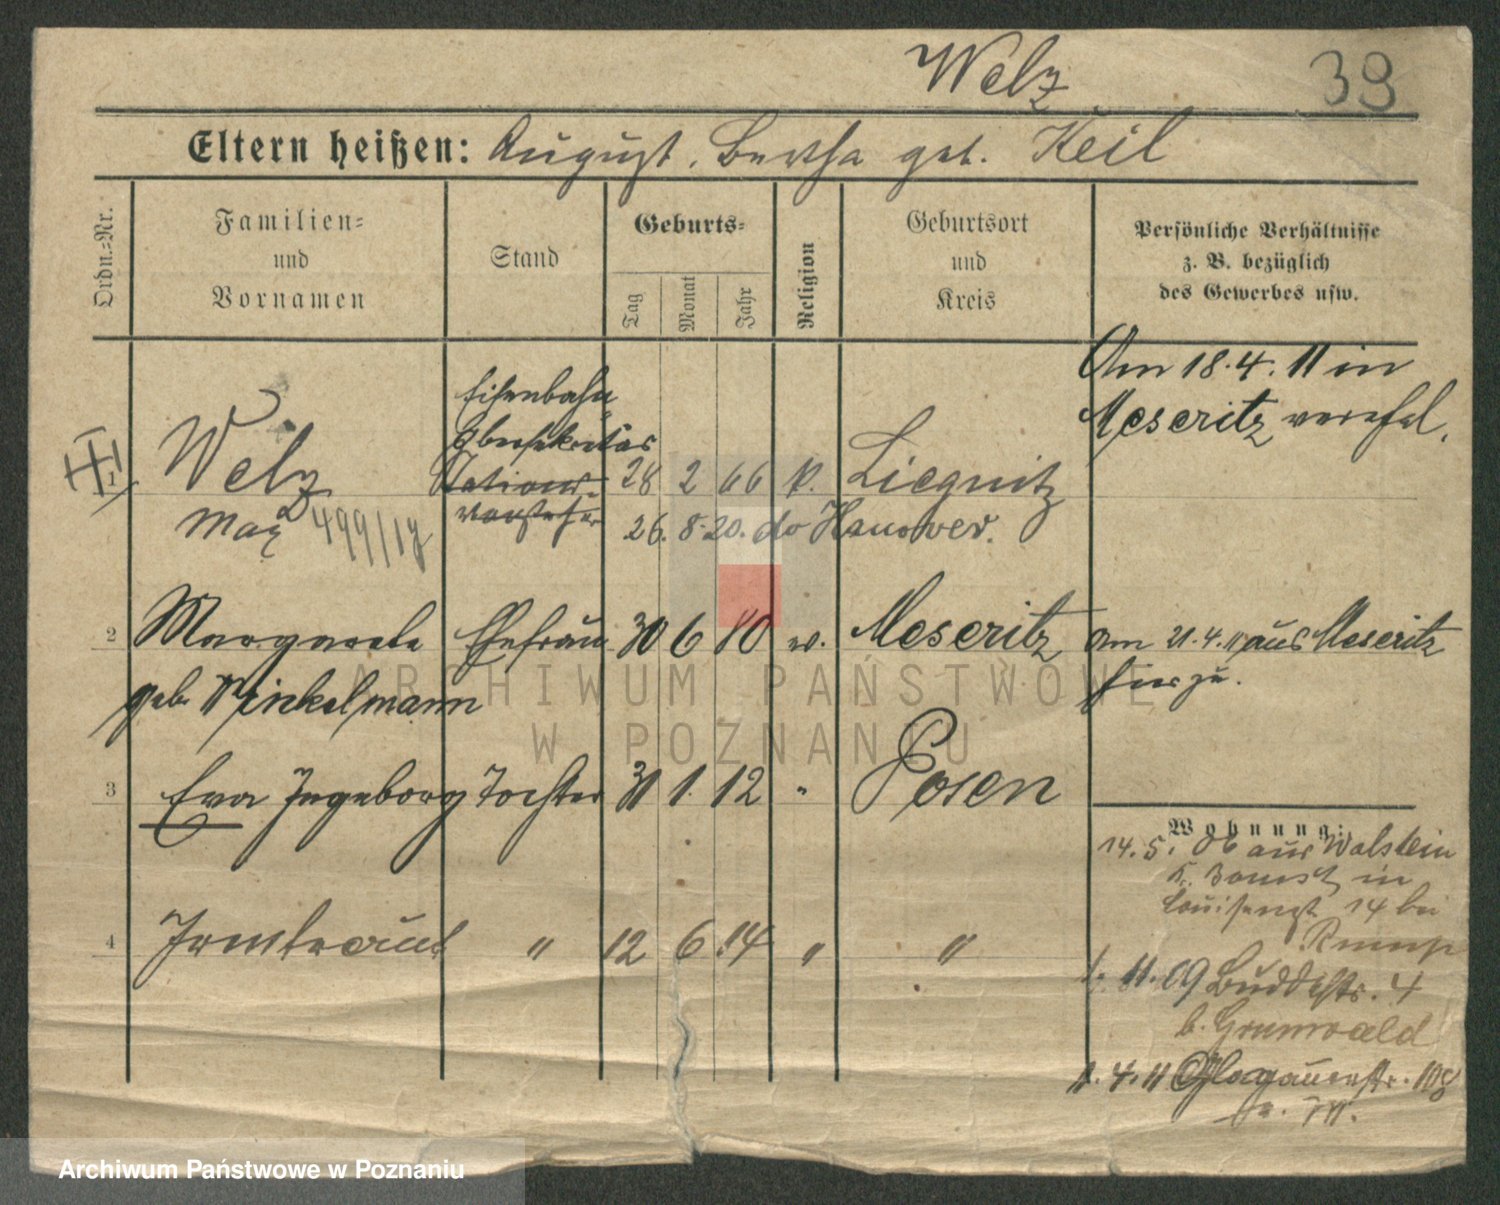 Welz
39
Eltern heißen: August, Bertha geb. Keil
Ordn.=Nr.
Familien=
und
Vornamen
Stand
Geburts=
Tag
Monat
Jahr
Religion
Geburtsort
und
Kreis
Persönliche Verhältnisse
z. B. bezüglich
des Gewerbes usw.
Am 18.4.11 in
Meseritz verehel.
1 Welz Eisenbahn
Obersekretär
Stations-
vorsteher 28 2 66 k. Liegnitz
Max 499/19 26. 8. 20. do Hanover.
2 Margarete Ehefrau 30 6 80 Meseritz Am 21.4.11 aus Meseritz
hierzu.
geb. Winkelmann
3 Eva Ingeborg Tochter 31 1. 12 " Posen
4 Irmtraut " 12 6 14 " "
Wohnung:
14. 5. 06 aus Wolstein
Kr. Bomst in
Louisenst 14 bei
1. 11. 09 Buddestr. 4
b. Grunwald
1. 4. 11 Glogauerstr. 108
ARCHIWUM PAŃSTWOWE
W POZNANIU
Archiwum Państwowe w Poznaniu